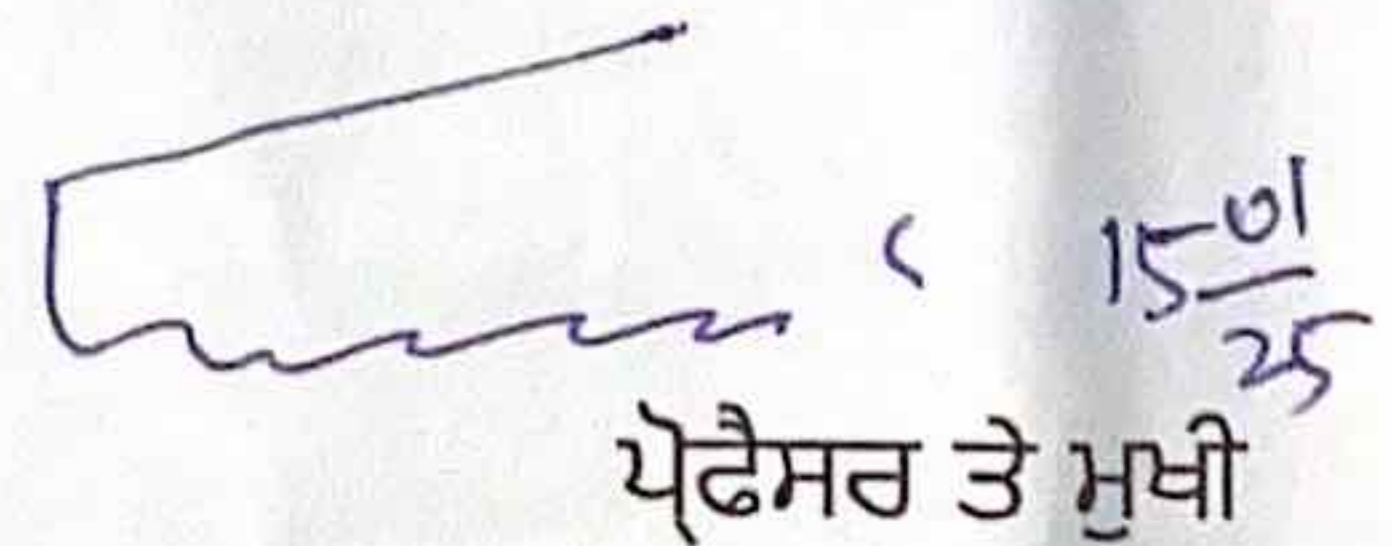 15-01
25
ਪ੍ਰੋਫੈਸਰ ਤੇ ਮੁਖੀ